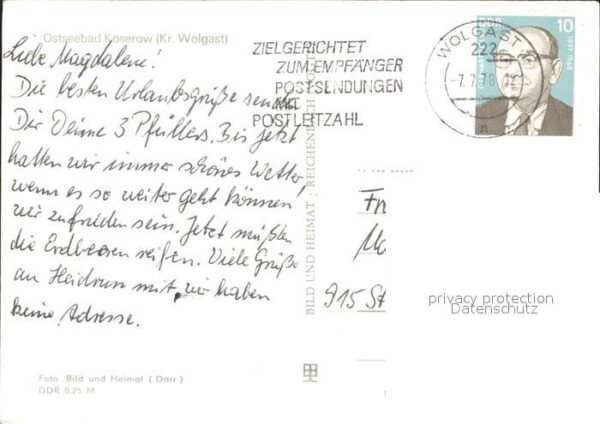 Ostseebad Koserow (Kr. Wolgast)
Liebe Magdalene!
Die besten Urlaubsgrüße senden
Dir Deine 3 Pfüllers. Bis jetzt
hatten wir immer schönes Wetter,
wenn es so weiter geht können
wir zufrieden sein. Jetzt müßten
die Erdbeeren reifen. Viele Grüße
an Heidrun mit, wir haben
keine Adresse.
Foto: Bild und Heimat (Darr)
DDR 0,25 M
BILD UND HEIMAT REICHENBACH
ZIELGERICHTET
ZUM EMPFÄNGER
POSTSENDUNGEN
MIT
POSTLEITZAHL
WOLGAST
222
-7.7.78
n
DDR
10
Fr
915 St
privacy protection
Datenschutz